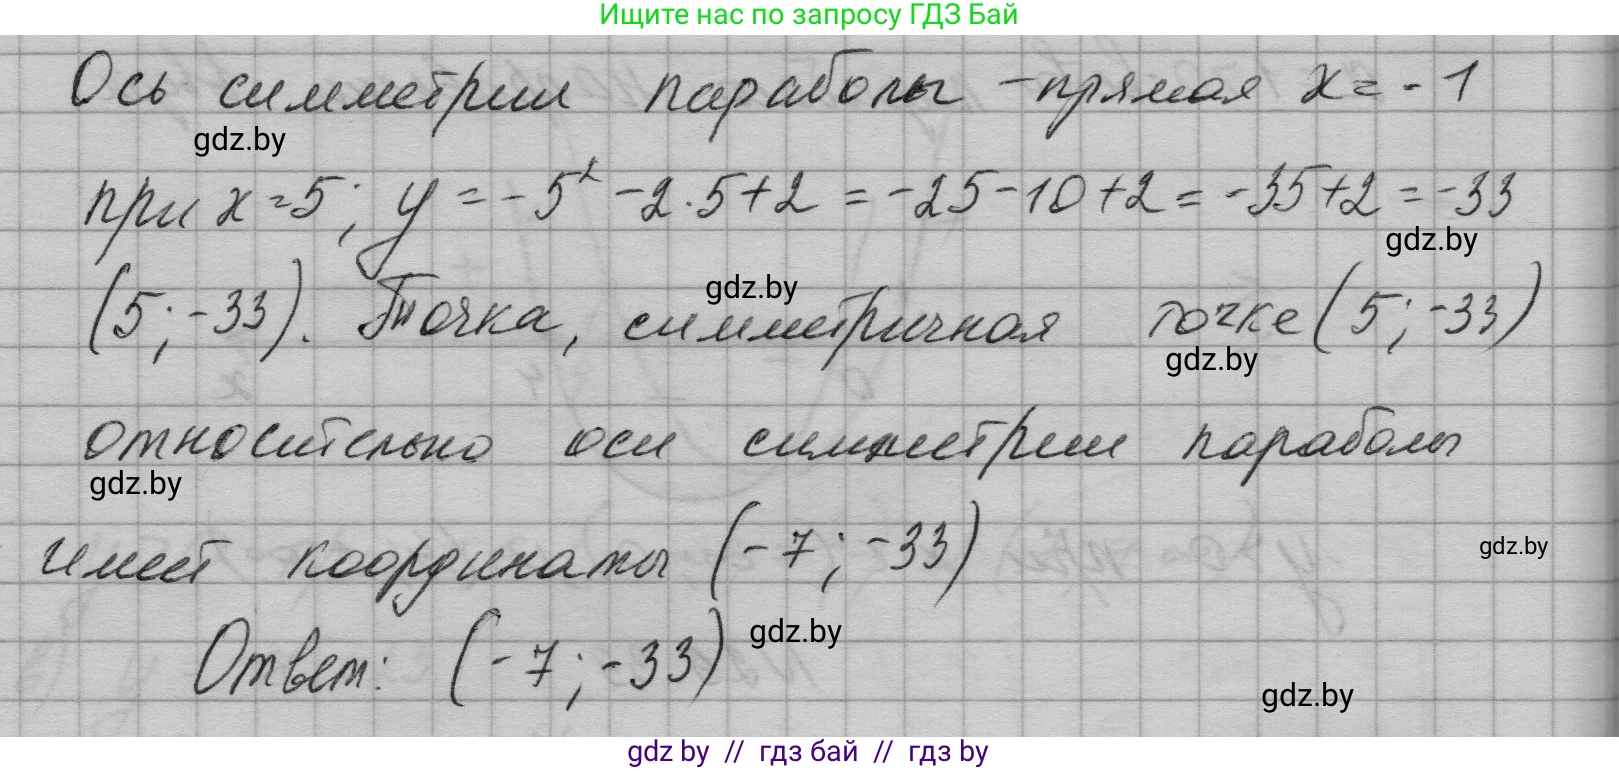 Ищите нас по запросу ГДЗ Бай
Ось симметрии параболы – прямая x = -1
gdz.by
при x = 5; y = -5² - 2·5 + 2 = -25 - 10 + 2 = -35 + 2 = -33
gdz.by
(5; -33). Точка, симметричная точке (5; -33)
gdz.by
gdz.by
относительно оси симметрии параболы
gdz.by
имеет координаты (-7; -33)
gdz.by
Ответ: (-7; -33)
gdz.by
gdz.by
gdz by // гдз бай // гдз by